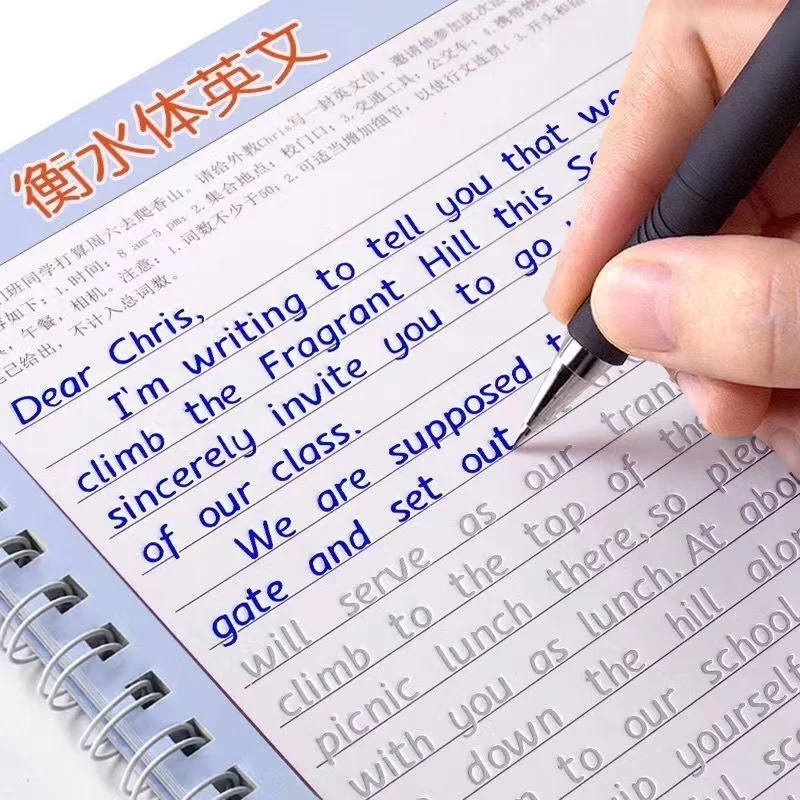 衡水体英文
门班同学打算周六去爬香山。请给外教Chris写一封英文信，邀请他参加此次活
如下：1.时间：8 am-5 pm；2.集合地点：校门口；3.交通工具：公交车；4.携带物
，午餐，相机。注意：1.词数不少于50；2.可适当增加细节，以使行文连贯；3.开头和结
已给出，不计入总词数。
Dear Chris,
I'm writing to tell you that we
climb the Fragrant Hill this
sincerely invite you to go
of our class.
We are supposed
gate and set out
will serve as our
climb to the top of the
picnic lunch there, so
with you as lunch. At
down the hill
to our school
yourself